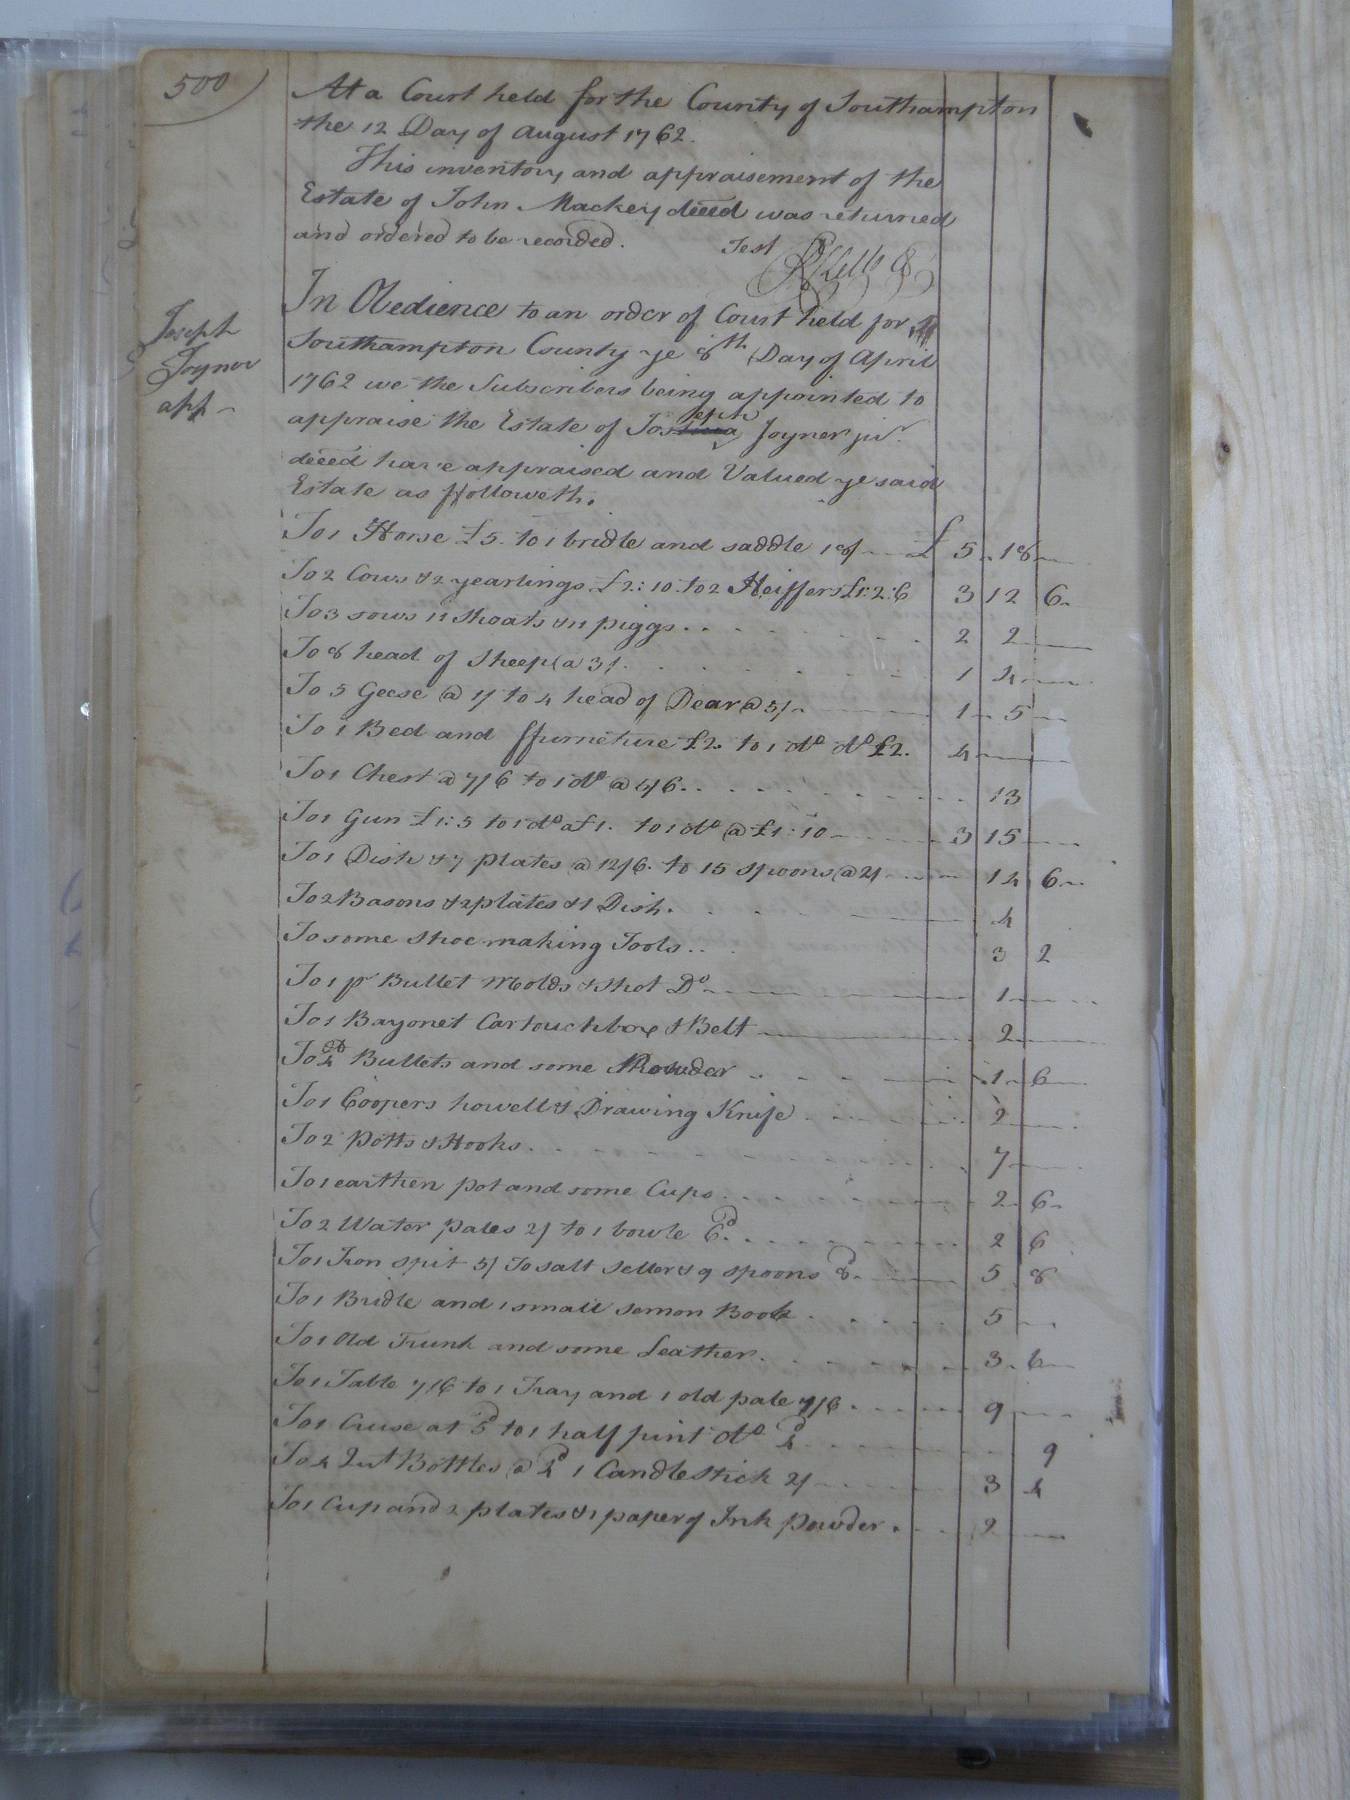 500
At a Court held for the County of Southampton
the 12 Day of August 1762.
This inventory and appraisement of the
Estate of John Mackey deceed was returned
and ordered to be recorded. Test
Joseph
Joyner
app
In Obedience to an order of Court held for
Southampton County ye 8th Day of April
1762 we the Subscribers being appointed to
appraise the Estate of Joseph Joyner junr.
deceed have appraised and Valued ye said
Estate as ffolloweth.
To 1 Horse £5. to 1 bridle and saddle 18/ £ 5 18
To 2 Cows & 2 yearlings £2:10. to 2 Heiffers £1:2:6 3 12 6
To 3 sows 11 Shoats & 11 piggs 2 2
To 8 head of Sheep @ 3/ 1 4
To 5 Geese @ 1/ to 4 head of Dear @ 5/ 1 5
To 1 Bed and ffurneture £2. to 1 do do £2. 4
To 1 Chest @ 7/6 to 1 do @ 5/6 13
To 1 Gun £1:5 to 1 do a £1. to 1 do @ £1:10 3 15
To 1 Dish & 7 plates @ 12/6. to 15 spoons @ 2/ 14 6
To 2 Basons & 2 plates & 1 Dish. 4
To some Shoe making Tools 3 2
To 1 pr Bullet Molds & Shot Do 1
To 1 Bayonet Cartouch box & Belt 2
To 4 lb Bullets and some Powder 1 6
To 1 Coopers howell & Drawing Knife 2
To 2 Potts & Hooks 7
To 1 earthen pot and some Cups 2 6
To 2 Water pales 2/ to 1 bowle 6d. 2 6
To 1 Iron spit 5/ To salt seller & 9 spoons 8d. 5 8
To 1 Bridle and 1 small Semon Book 5
To 1 Old Trunk and some Leather. 3 6
To 1 Table 7/6 to 1 Tray and 1 old pale 1/6 9
To 1 Cruse at 5d to 1 half pint do 4d 9
To 4 Qut Bottles @ 4d 1 Candlestick 2/ 3 4
To 1 Cup and 2 plates & 1 paper of Ink powder. 2